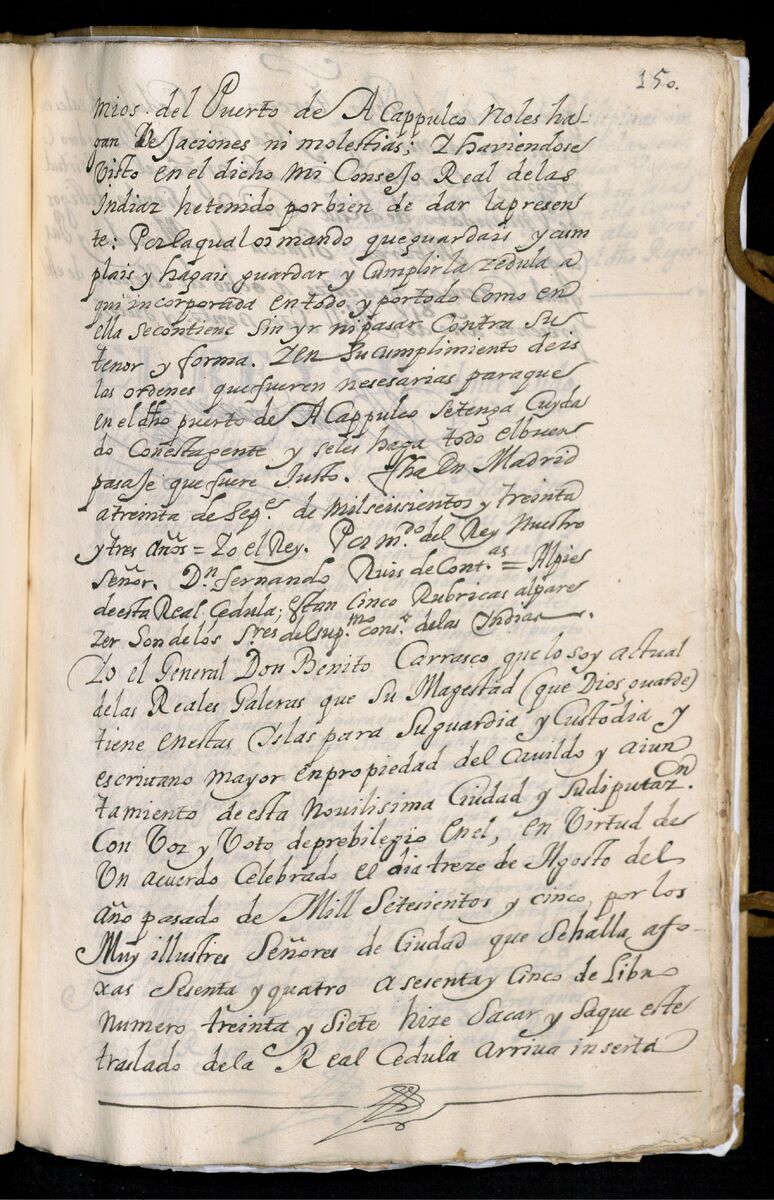 150.
mios del Puerto de ACappulco noles ha-
gan Vejaciones ni molestias; Y haviendose
Visto en el dicho mi Consejo Real delas
Indias hetenido porbien de dar lapresen
te: Por laqual os mando queguardais y cum
plais y hagais guardar y Cumplir la Zedula a
qui incorporada entodo y portodo Como en
ella secontiene Sin yr nipasar Contra Su
tenor y forma. Y en Sucumplimiento deis
las ordenes quefueren nesesarias paraque
en el dho puerto de ACappulco Setenga Cuyda
do Conestagente y seles haga todo elbuen
pasaje que fuere Justo. fha En Madrid
atreinta de Sepe. de milseissientos y treinta
y tres años = Yo el Rey. Por mdo del Rey Nuestro
Señor. Dn fernando Ruis de Contas = Alpie
deesta Real Cedula; estan Cinco Rubricas alpare
zer Son delos Sres del supmo. cons. delas Indias.
Yo el General Don Benito Carrasco que lo soy actual
delas Reales Galeras que Su Magestad (que Dios guarde)
tiene enestas Islas para Suguardia y Custodia y
escrivano mayor enpropiedad del Cavildo y aiun
tamiento de esta Novilisima Ciudad y Sudiputazon.
Con Voz y Voto deprebilegio enel, en Virtud de
Un acuerdo Celebrado el dia treze de Agosto del
año pasado de Mill Setesientos y cinco, por los
Muy illustres Señores de Ciudad que Sehalla afo-
xas Sesenta y quatro asesenta y Cinco de Libro
numero treinta y Siete hize Sacar y Saque este
traslado dela Real Cedula arriva inserta